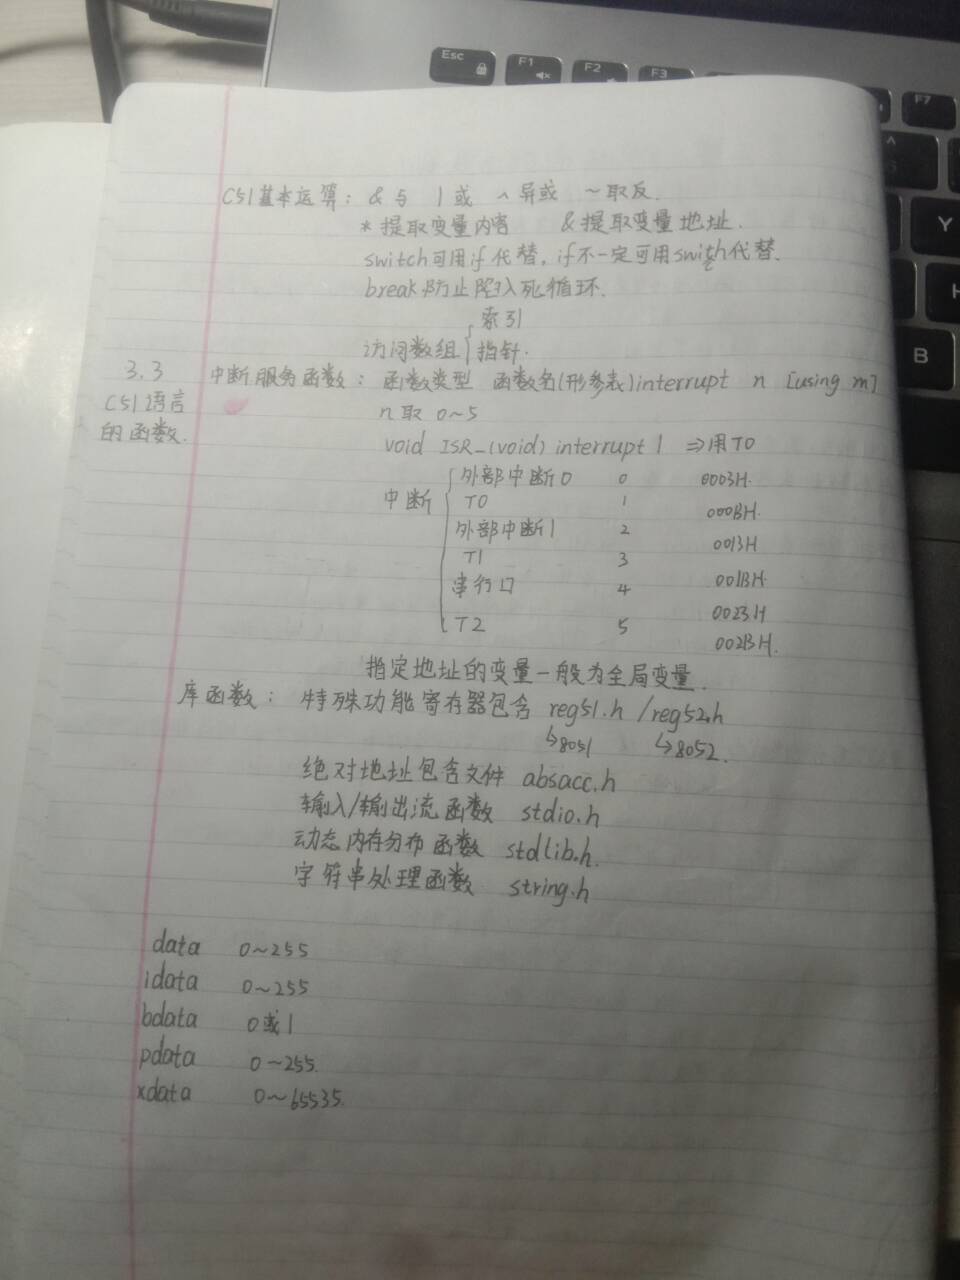 Esc
F1
F2
F3
F7
Y
H
B
C51基本运算: & 与 | 或 ^ 异或 ~取反.
* 提取变量内容 & 提取变量地址.
switch可用if代替, if不一定可用swith代替.
break防止陷入死循环.
访问数组 { 索引
指针.
3.3 C51语言的函数.
中断服务函数: 函数类型 函数名(形参表)interrupt n [using m]
n取 0~5
void ISR_(void) interrupt 1 ⇒用T0
中断 { 外部中断0 0 0003H.
T0 1 000BH.
外部中断1 2 0013H
T1 3 001BH.
串行口 4 0023H
T2 5 002BH.
指定地址的变量一般为全局变量.
库函数: 特殊功能寄存器包含 reg51.h /reg52.h
↳8051 ↳8052.
绝对地址包含文件 absacc.h
输入/输出流函数 stdio.h
动态内存分布函数 stdlib.h.
字符串处理函数 string.h
data 0~255
idata 0~255
bdata 0或1
pdata 0~255.
xdata 0~65535.